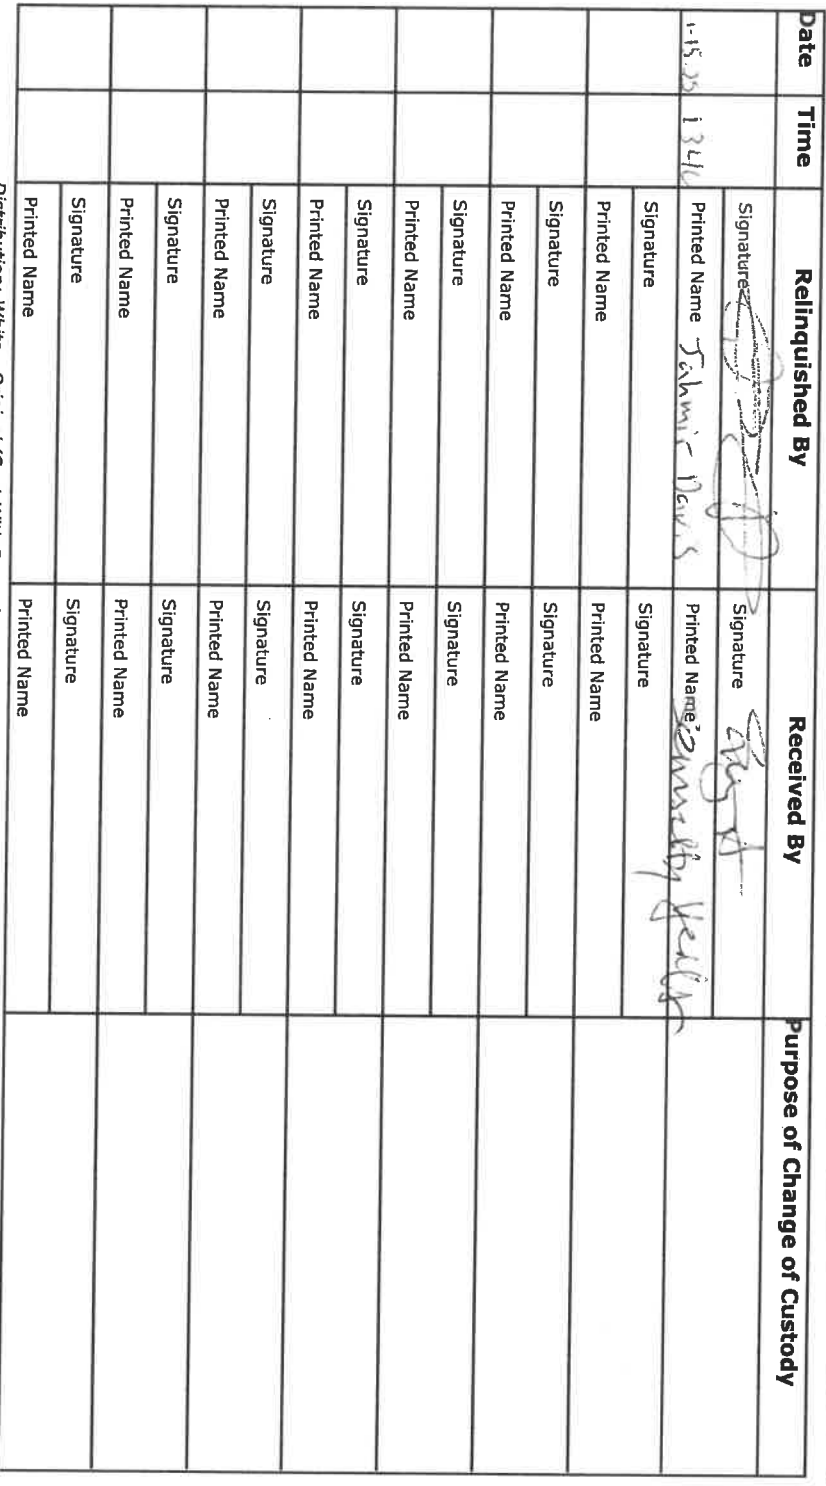 Date Time Relinquished By Received By Purpose of Change of Custody
Signature Signature
1-15.25 Printed Name Jahmir Davis Printed Name
Signature Signature
Printed Name Printed Name
Signature Signature
Printed Name Printed Name
Signature Signature
Printed Name Printed Name
Signature Signature
Printed Name Printed Name
Signature Signature
Printed Name Printed Name
Signature Signature
Printed Name Printed Name
Signature Signature
Printed Name Printed Name